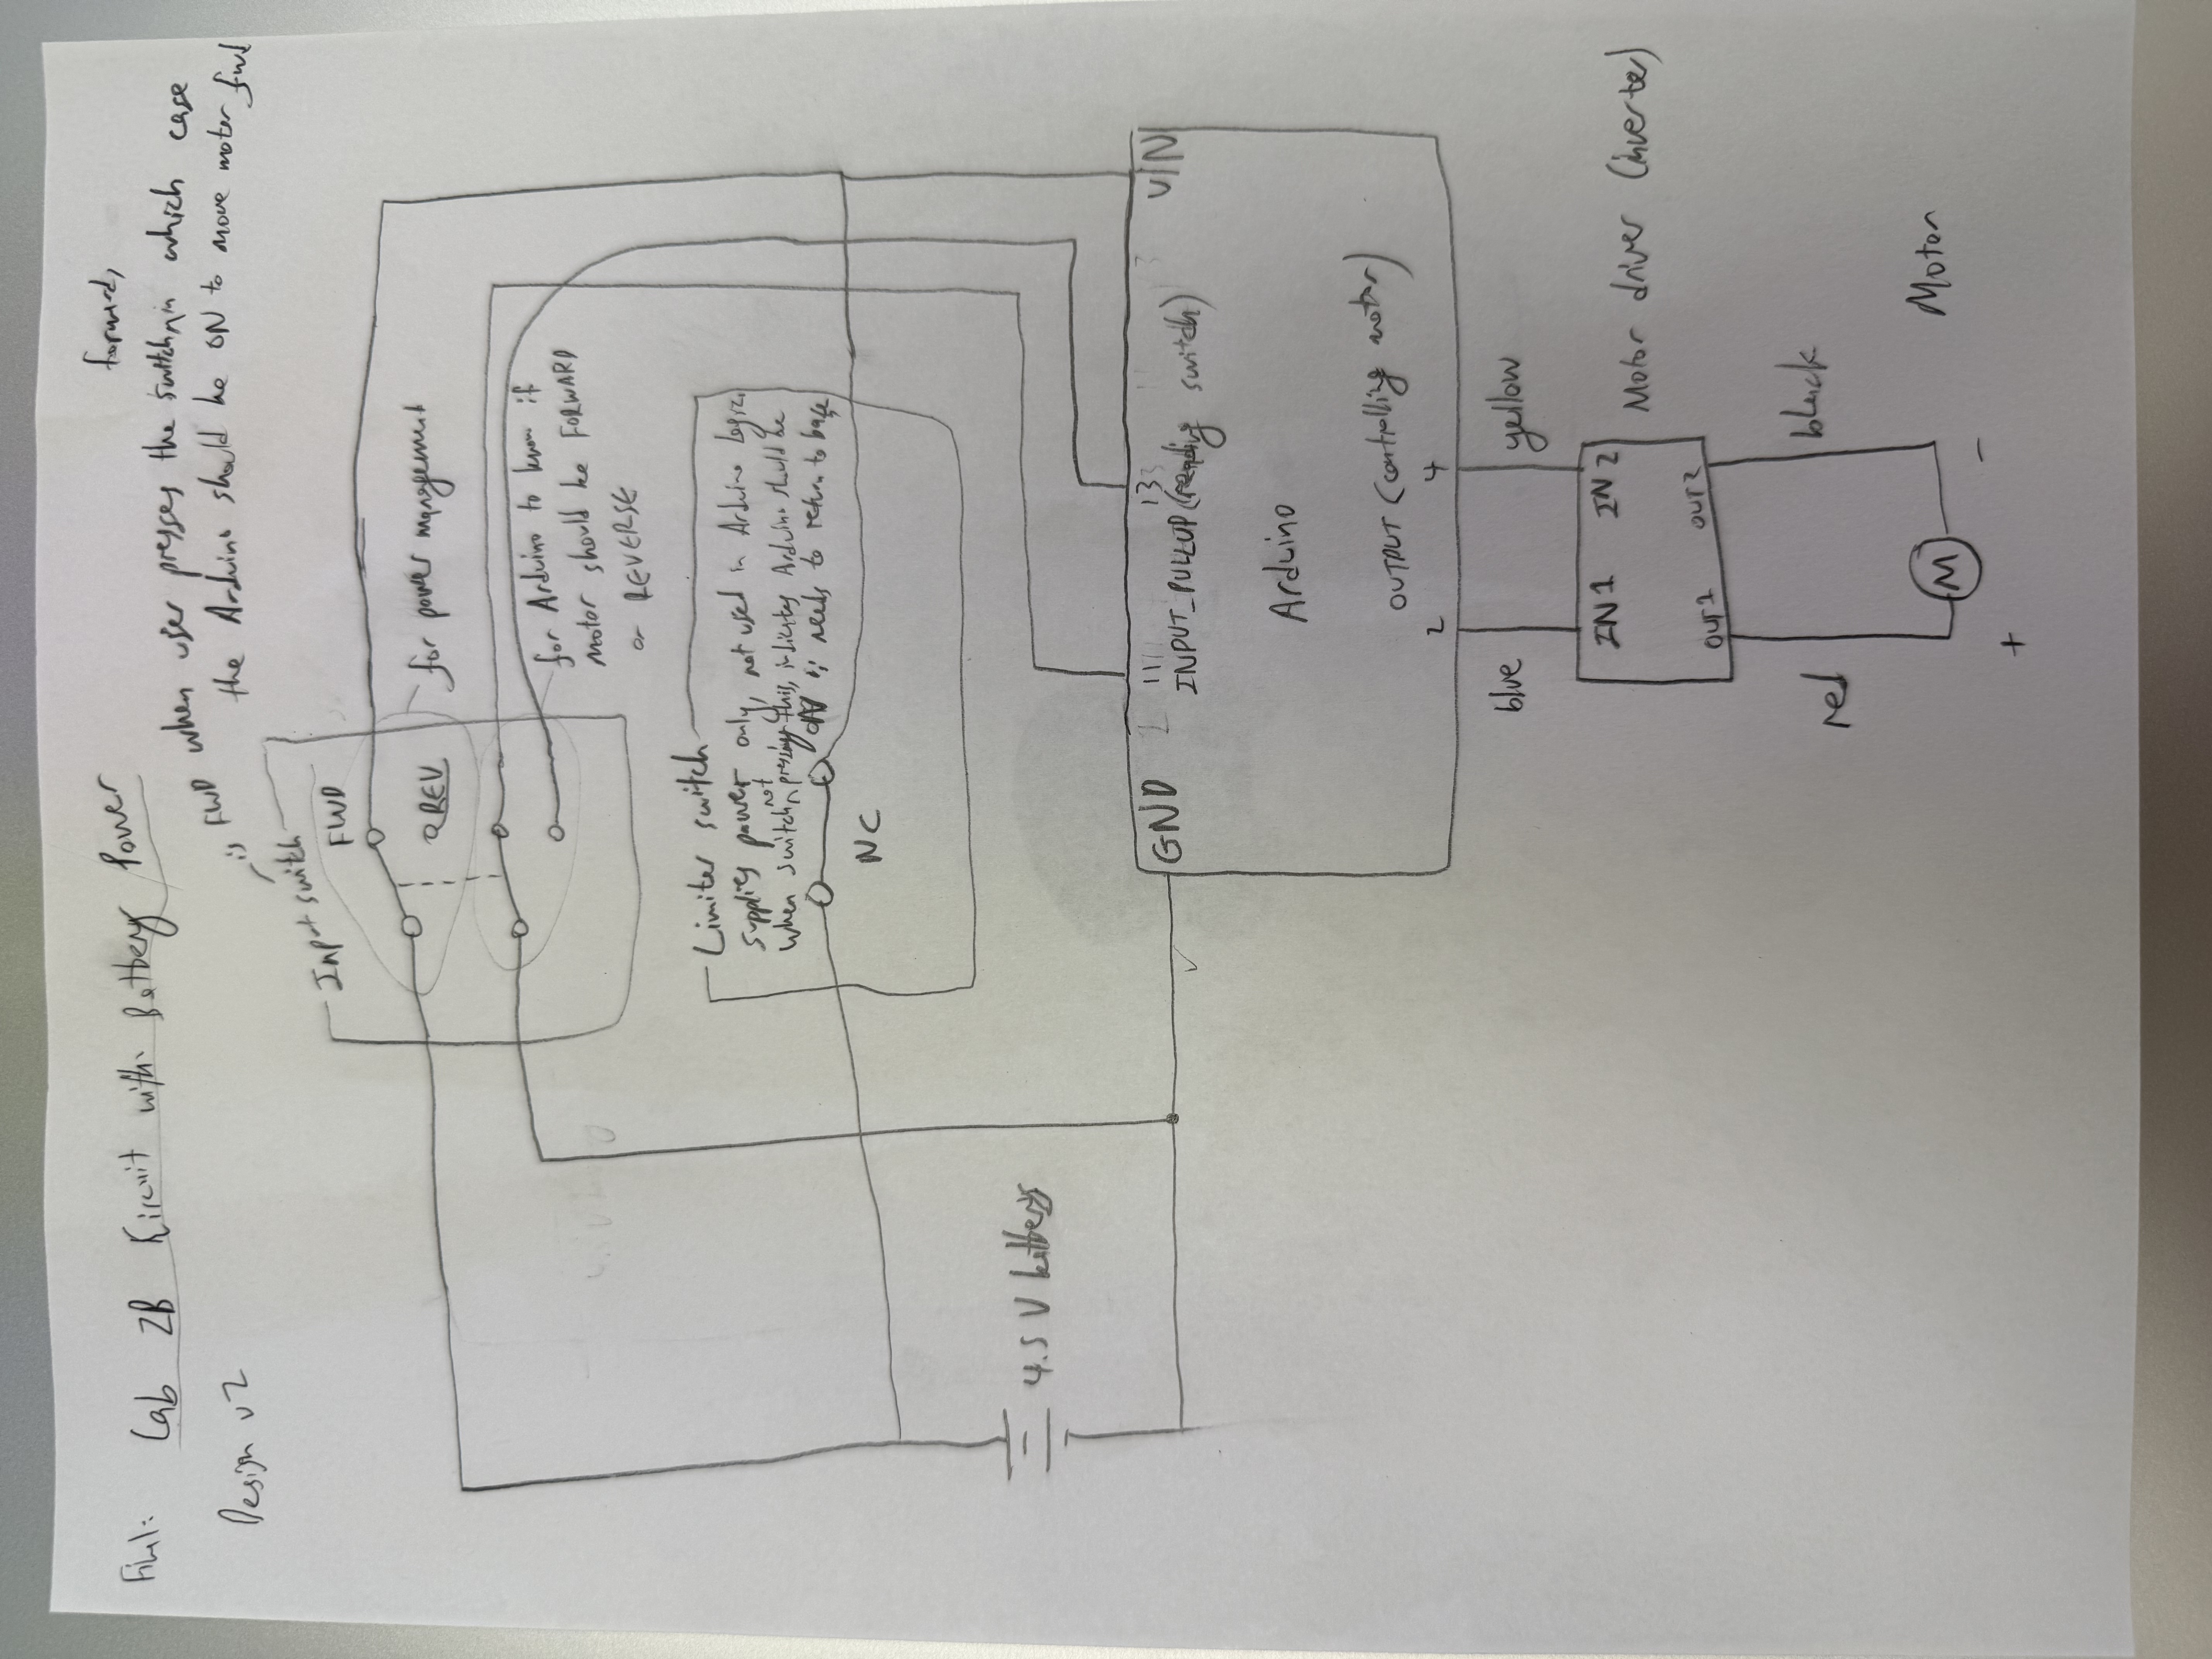 Final: Lab 2B Circuit with Battery Power
Design v2
forward,
is FWD when user presses the switch, in which case
the Arduino should be ON to move motor fwd
Input switch
FWD
REV
for power management
for Arduino to know if
motor should be FORWARD
or REVERSE
Limiter switch
supplies power only, not used in Arduino logic.
not
when switch pressing this, indicates Arduino should be
ON ∵ needs to return to base
NC
4.5 V battery
GND 11 13 VIN
INPUT_PULLUP (reading switch)
Arduino
OUTPUT (controlling motor)
2 4
blue yellow
IN1 IN2
Motor driver (inverter)
OUT1 OUT2
red black
M
Motor
+ -